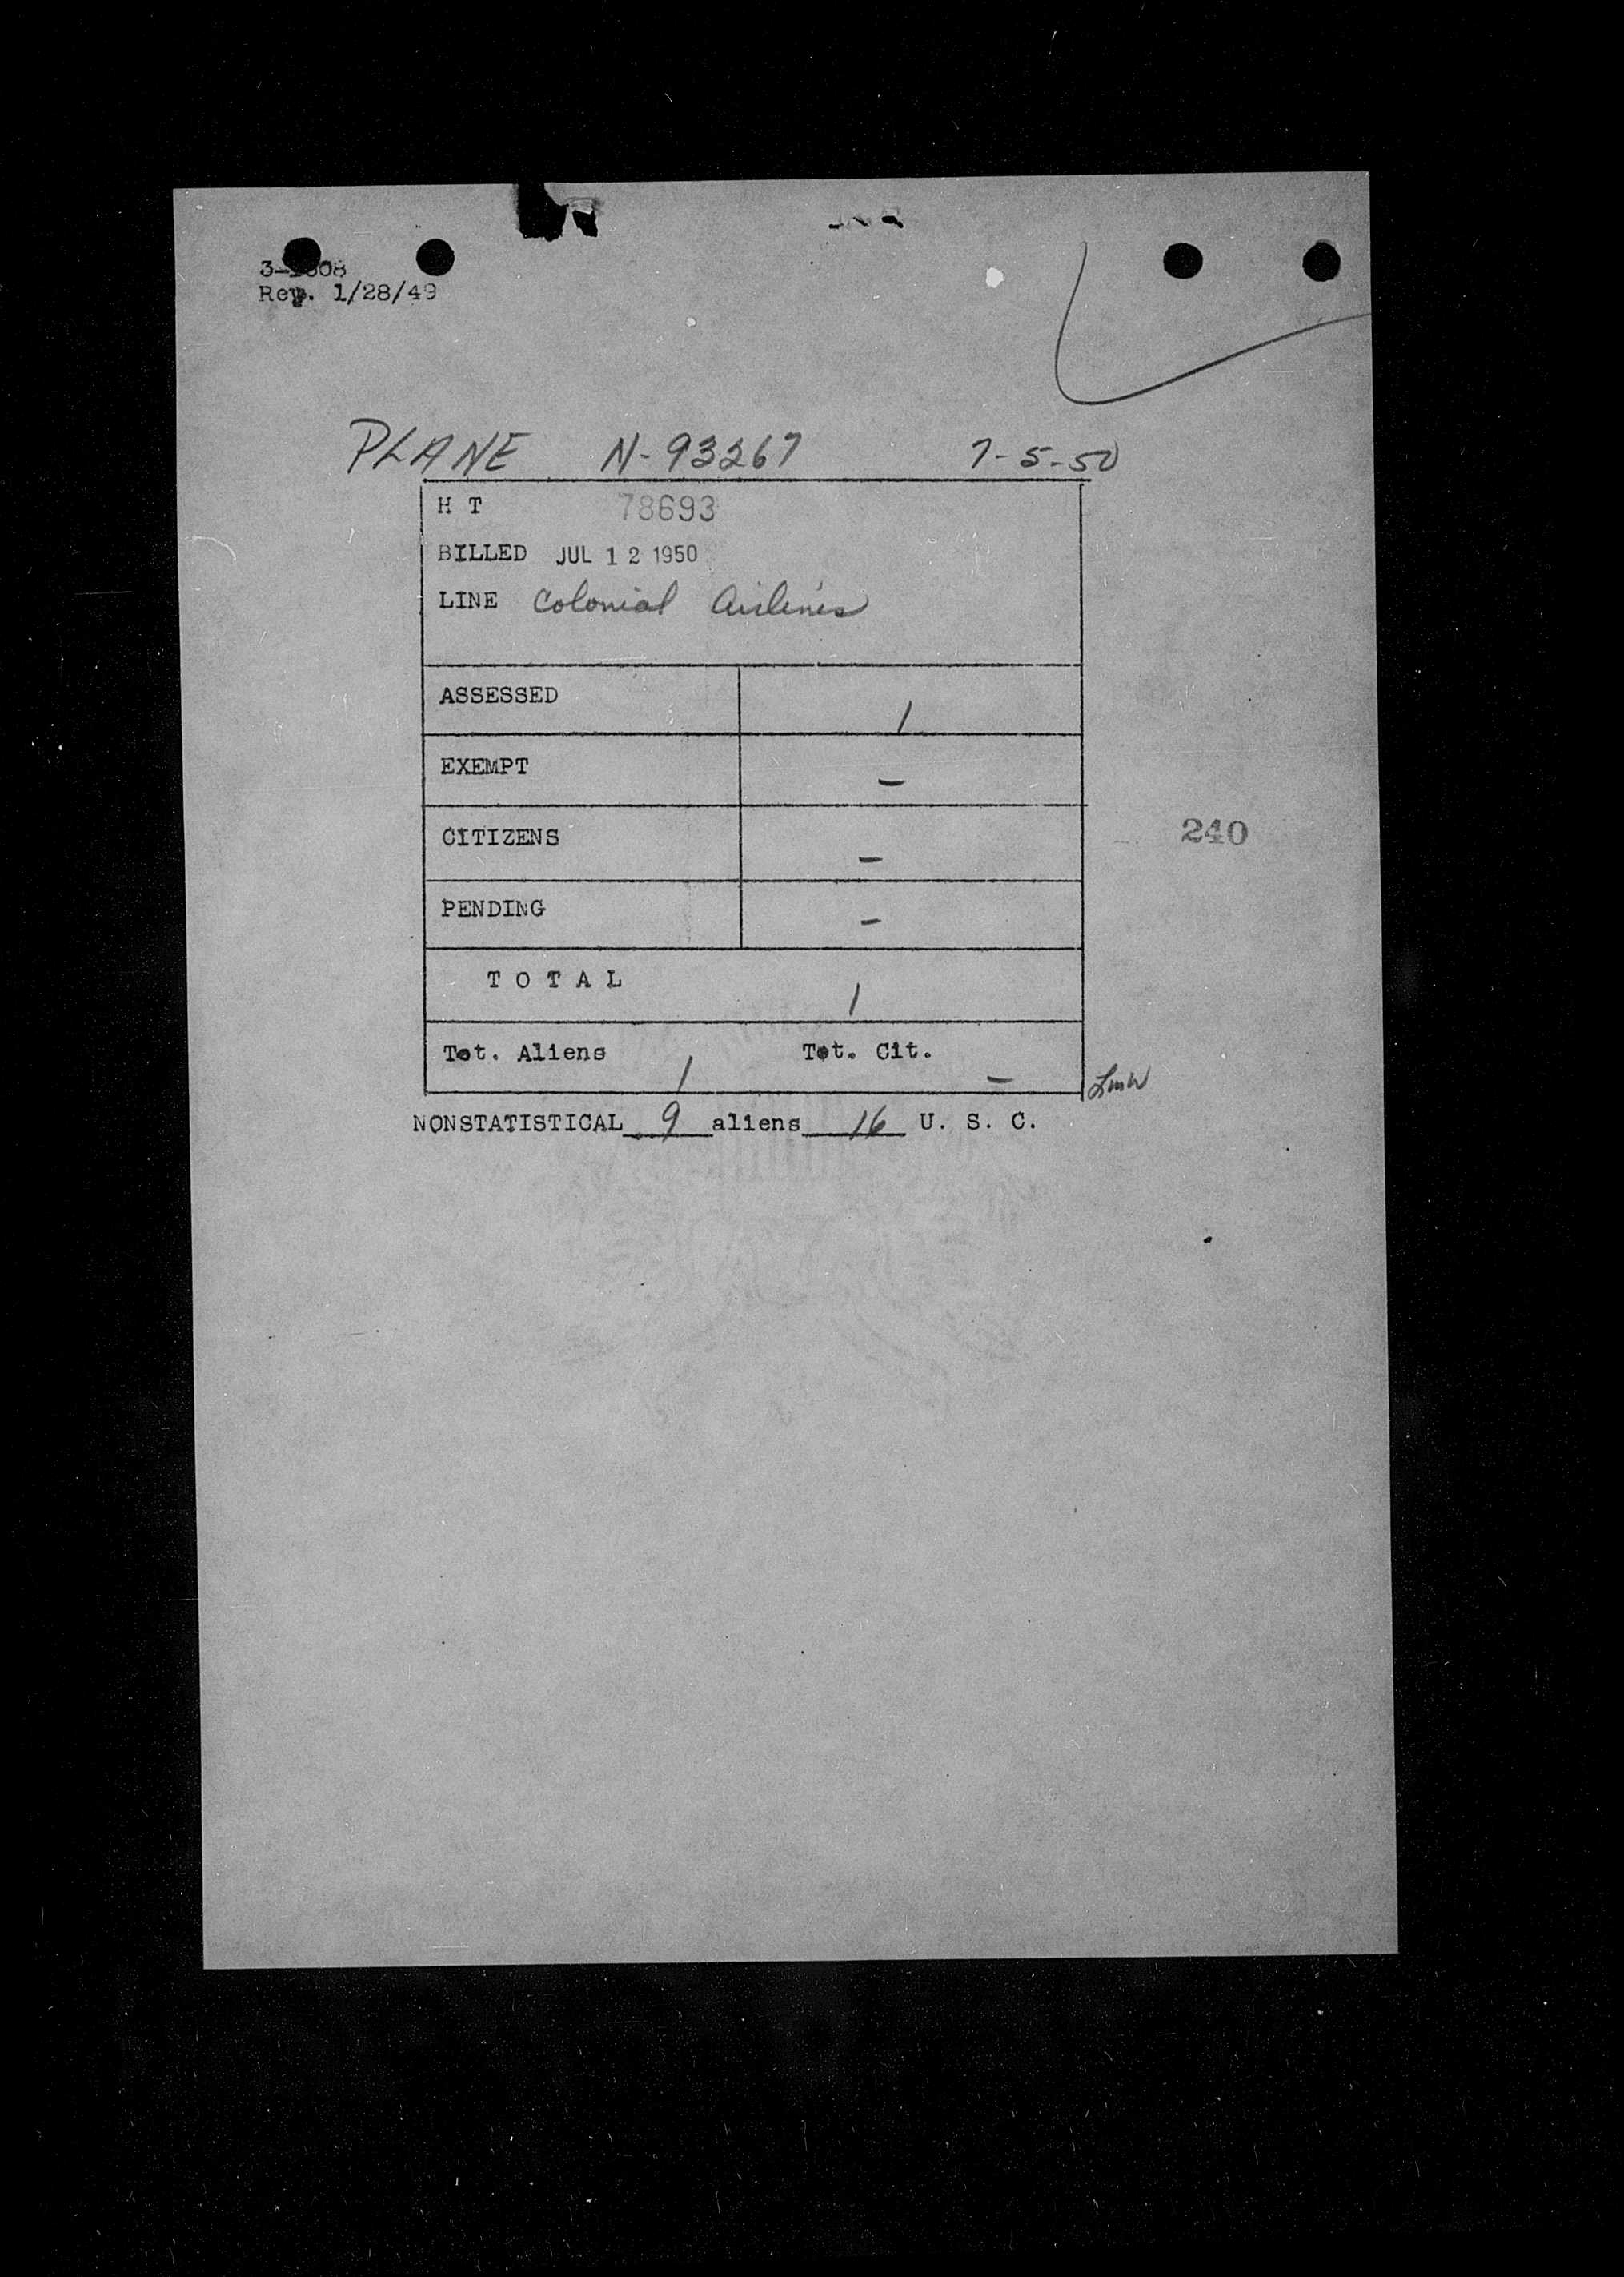 Rev. 1/28/49
PLANE N-93267 7-5-50
H T 78693
BILLED JUL 12 1950
LINE Colonial Airlines
ASSESSED 1
EXEMPT –
CITIZENS –
240
PENDING –
T O T A L 1
Tot. Aliens 1 Tot. Cit. –
LMW
NONSTATISTICAL 9 aliens 16 U. S. C.